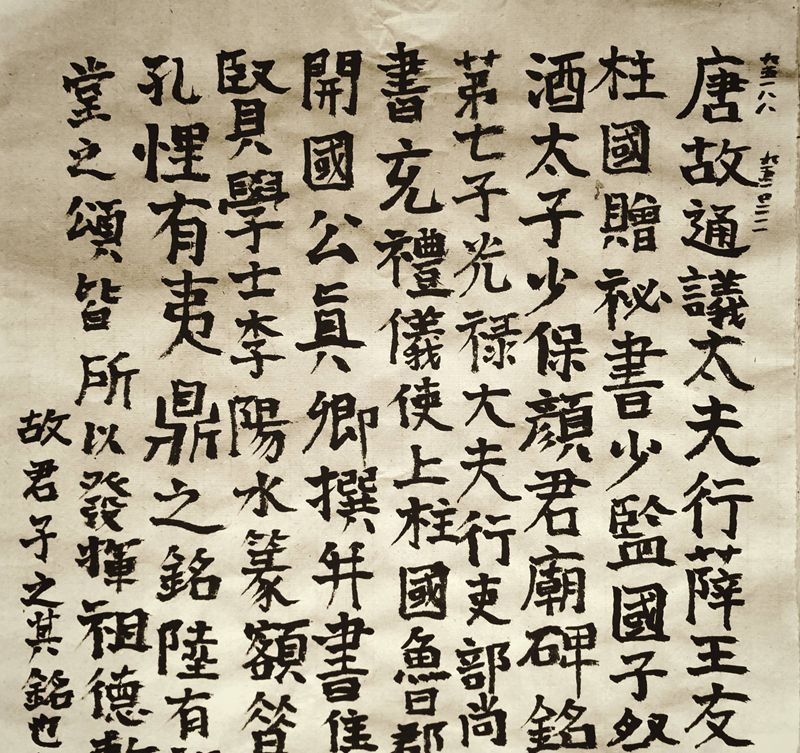 唐故通議太夫行薛王友
柱國贈祕書少監國子
酒太子少保顏君廟碑銘
第七子光祿大夫行吏部尚
書充禮儀使上柱國魯郡
開國公眞卿撰并書集
賢學士李陽水篆額
孔悝有夷鼎之銘陸有
堂之頌皆所以發揮祖德
故君子之其銘也